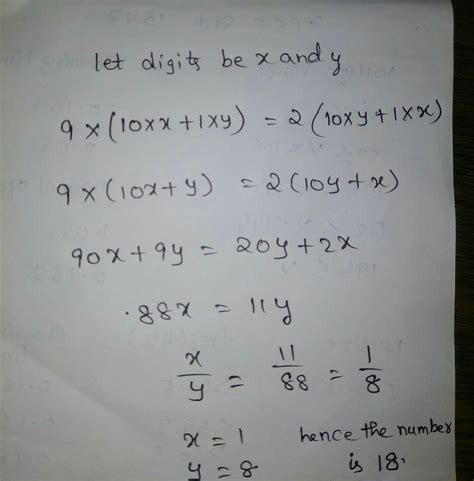 let digits be x and y
9 × (10×x + 1×y) = 2 (10×y + 1×x)
9 × (10x + y) = 2(10y + x)
90x + 9y = 20y + 2x
.88x = 11y
x/y = 11/88 = 1/8
x = 1 hence the number
y = 8 is 18.